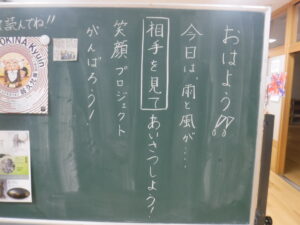 おはよう!!
今日は雨と風が....
相手を見てあいさつしよう!
笑顔プロジェクト
がんばろう!
読んでね!!
OKINA Kyuin